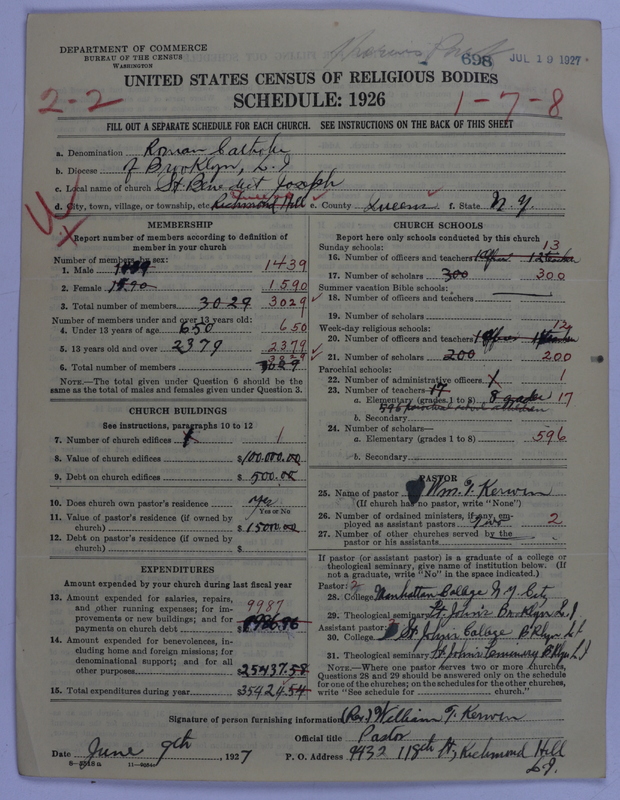 DEPARTMENT OF COMMERCE
BUREAU OF THE CENSUS
WASHINGTON
698 JUL 19 1927
UNITED STATES CENSUS OF RELIGIOUS BODIES
SCHEDULE: 1926
2-2
1-7-8
FILL OUT A SEPARATE SCHEDULE FOR EACH CHURCH. SEE INSTRUCTIONS ON THE BACK OF THIS SHEET
a. Denomination Roman Catholic
b. Diocese of Brooklyn, L.I
c. Local name of church St. Benedict Joseph
d. City, town, village, or township, etc. Richmond Hill e. County Queens f. State N.Y.
MEMBERSHIP
Report number of members according to definition of member in your church
Number of members by sex:
1. Male 1439
2. Female 1590 1590
3. Total number of members 3029 3029
Number of members under and over 13 years old:
4. Under 13 years of age 650 650
5. 13 years old and over 2379 2379
6. Total number of members 3029
NOTE.—The total given under Question 6 should be the same as the total of males and females given under Question 3.
CHURCH BUILDINGS
See instructions, paragraphs 10 to 12
7. Number of church edifices 1 1
8. Value of church edifices $100.000.00
9. Debt on church edifices $500.00
10. Does church own pastor's residence yes
Yes or No
11. Value of pastor's residence (if owned by church) $15000.00
12. Debt on pastor's residence (if owned by church) $
EXPENDITURES
Amount expended by your church during last fiscal year
13. Amount expended for salaries, repairs, and other running expenses; for improvements or new buildings; and for payments on church debt 9987
14. Amount expended for benevolences, including home and foreign missions; for denominational support; and for all other purposes $25437.58
15. Total expenditures during year $35424.54
CHURCH SCHOOLS
Report here only schools conducted by this church
Sunday schools: 13
16. Number of officers and teachers 1 officer 12 teachers
17. Number of scholars 300 300
Summer vacation Bible schools:
18. Number of officers and teachers
19. Number of scholars
Week-day religious schools: 12
20. Number of officers and teachers 1 officer
21. Number of scholars 200 200
Parochial schools:
22. Number of administrative officers 1
23. Number of teachers 17
a. Elementary (grades 1 to 8) 8 grades 17
596 parochial school children
b. Secondary
24. Number of scholars—
a. Elementary (grades 1 to 8) 596
b. Secondary
PASTOR
25. Name of pastor Wm. T. Kerwin
(If church has no pastor, write "None")
26. Number of ordained ministers, if any, employed as assistant pastors Two 2
27. Number of other churches served by the pastor or his assistants
If pastor (or assistant pastor) is a graduate of a college or theological seminary, give name of institution below. (If not a graduate, write "No" in the space indicated.)
Pastor: 2
28. College Manhattan College N.Y. City
29. Theological seminary St. John's Brooklyn L.I
Assistant pastor:
30. College St. John's College Bklyn L.I
31. Theological seminary St. John's Seminary Bklyn. L.I
NOTE.—Where one pastor serves two or more churches, Questions 28 and 29 should be answered only on the schedule for one of the churches; on the schedules for the other churches, write "See schedule for ______ church."
Signature of person furnishing information (Rev.) William T. Kerwin
Official title Pastor
Date June 9th, 1927 P. O. Address 9432 118th St, Richmond Hill
L.I.